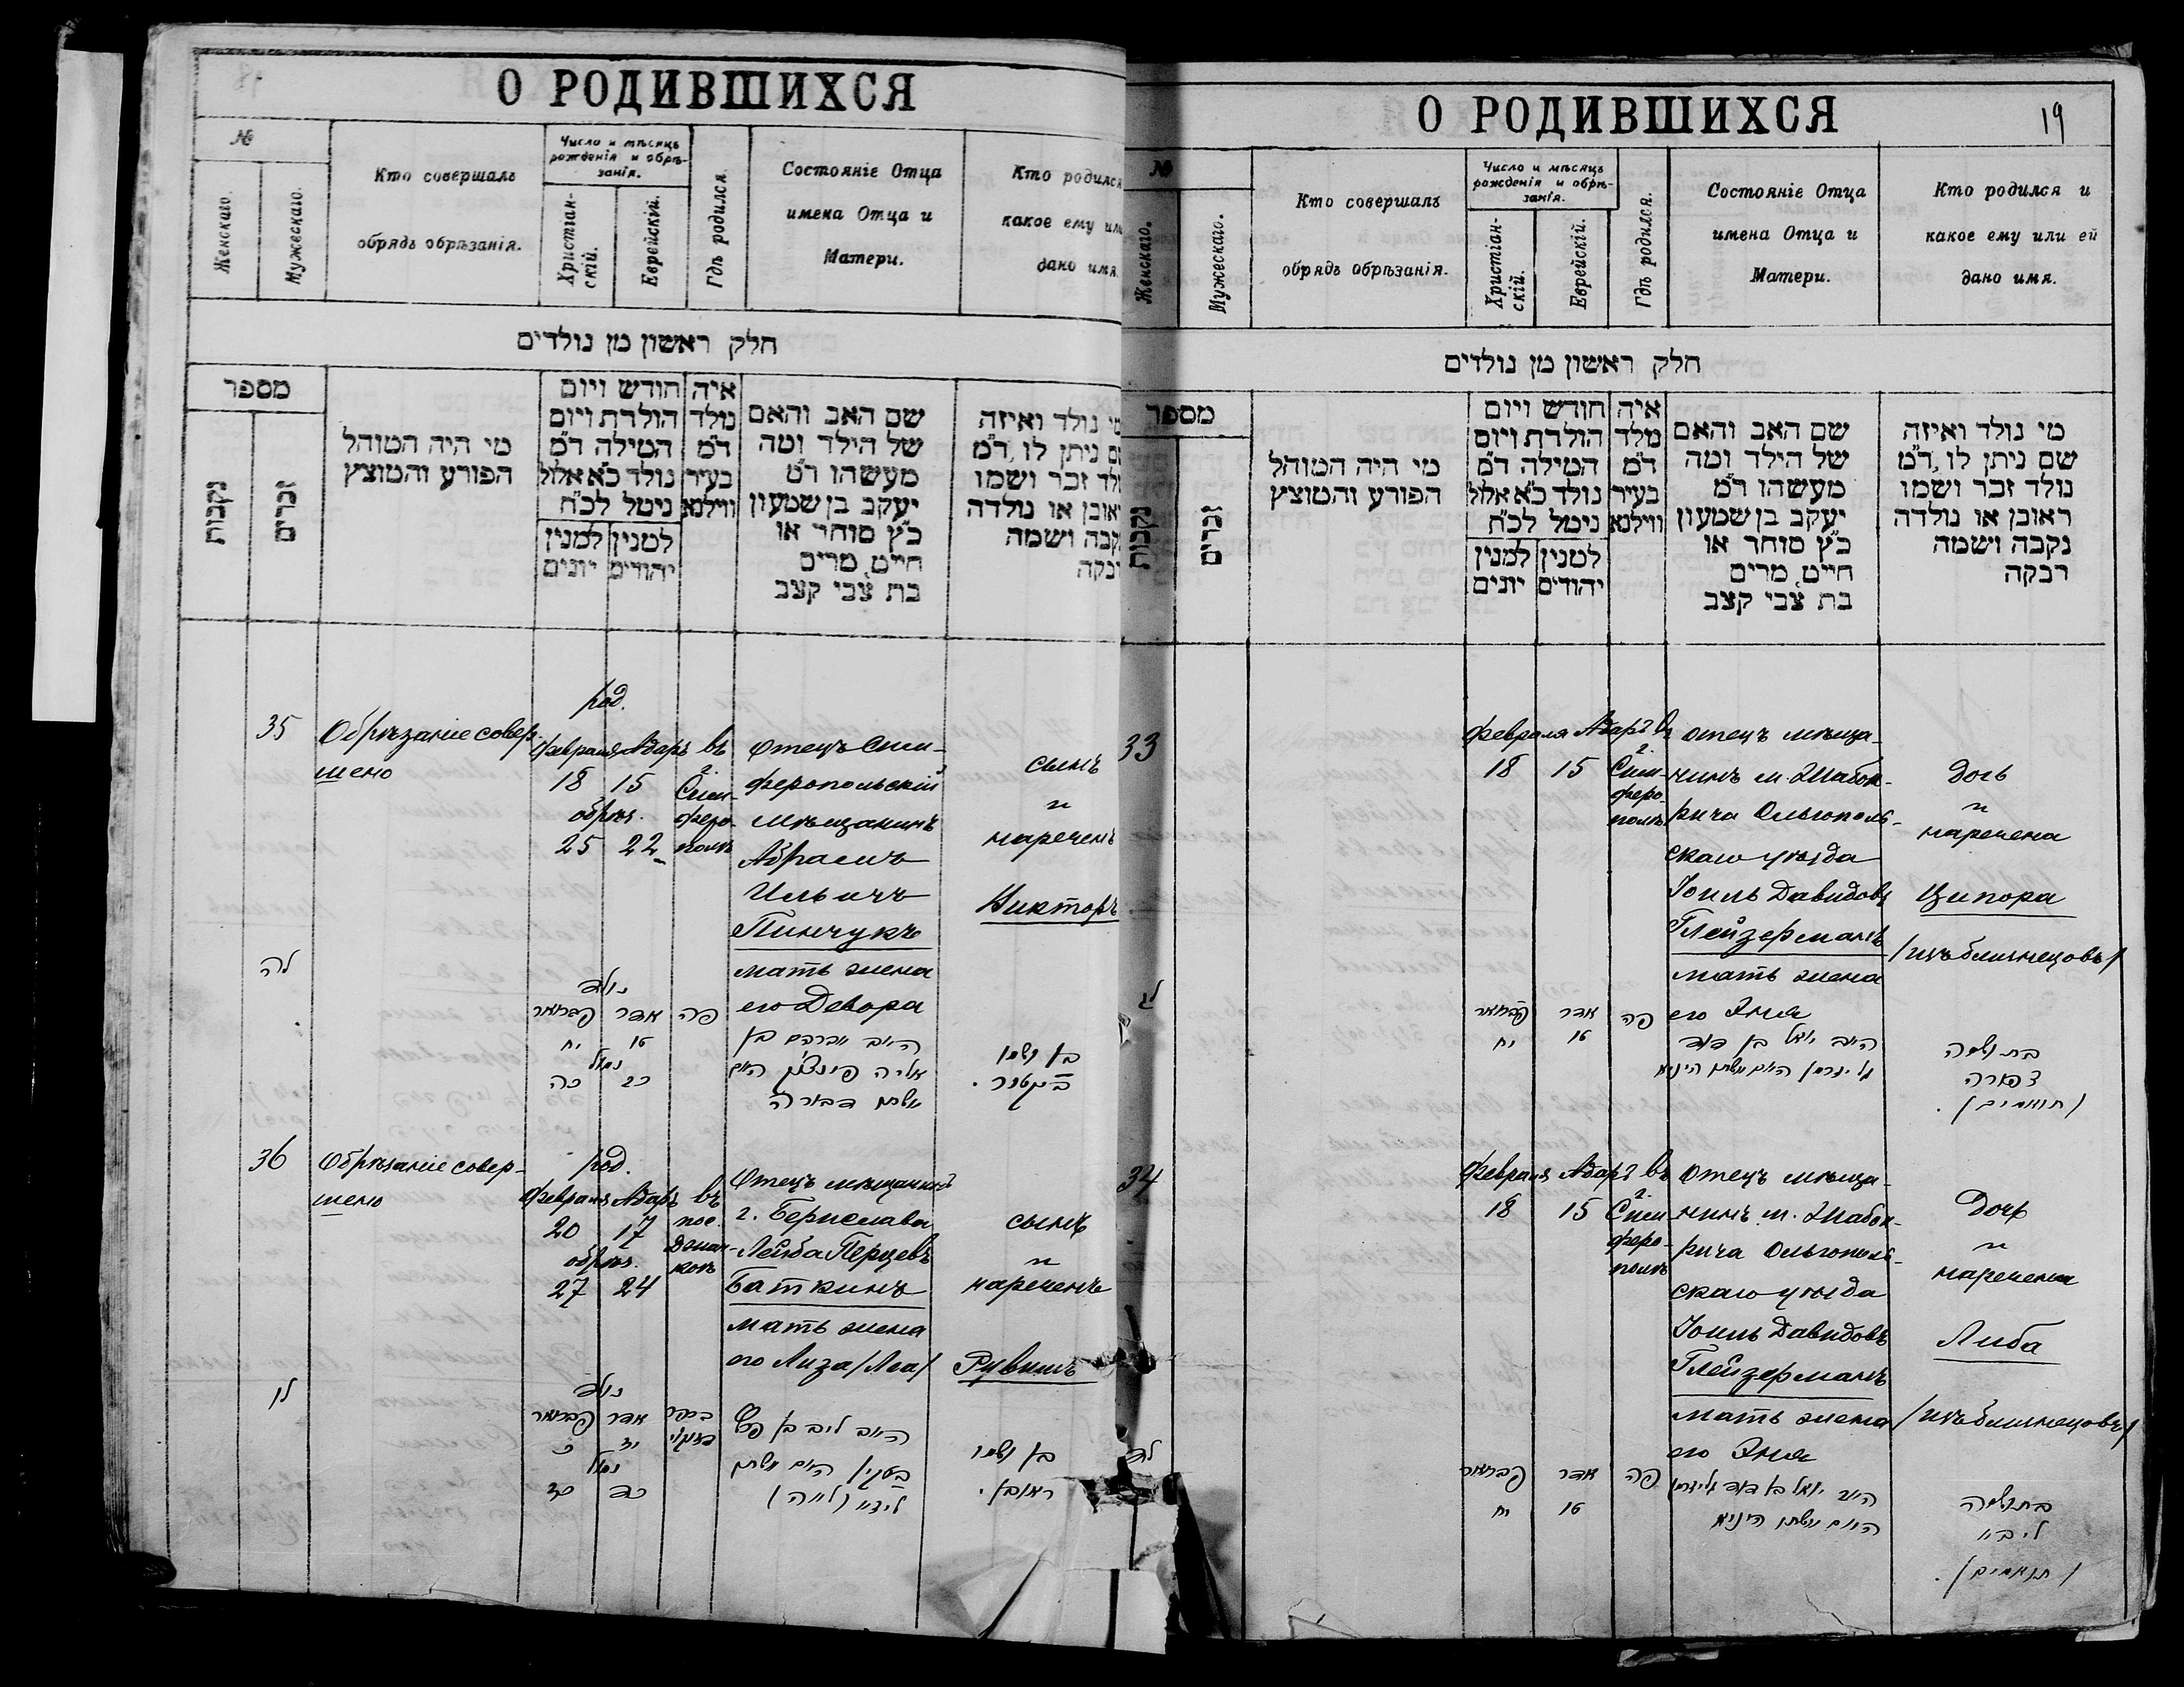 О РОДИВШИХСЯ
№
Женскаго.
Мужескаго.
Кто совершалъ
обрядъ обрѣзанія.
Число и мѣсяцъ
рожденія и обрѣ-
занія.
Христіан-
скій.
Еврейскій.
Гдѣ родился.
Состояніе Отца
имена Отца и
Матери.
Кто родился
какое ему или
дано имя.
חלק ראשון מן נולדים
מספר
נקבות
זכרים
מי היה המוהל
הפורע והמוצץ
חודש ויום
הולדת ויום
המילה ד״מ
נולד כ״א אלול
נימל לכ״ח
למנין
יהודים
למנין
יונים
איה
נולד
ד״מ
בעיר
ווילנא
שם האב והאם
של הילד ומה
מעשהו ד״מ
יעקב בן שמעון
כ״ץ סוחר או
חייט, מרים
בת צבי קצב
מי נולד ואיזה
שם ניתן לו, ד״מ
נולד זכר ושמו
ראובן או נולדה
נקבה ושמה
35
Обрѣзаніе совер-
шено
род.
Февраля Адаръ
18 15
обрѣз.
25 22
въ
г.
Сим-
феро-
полѣ
Отецъ Сим-
феропольскій
мѣщанинъ
Абрамъ
Ильичъ
Пинчукъ
мать жена
его Девора
сынъ
и
нареченъ
Викторъ
לה
נולד
פברואר אדר פה
יח טו
נימול
כה כב
האב אברהם בן
אליה פינצוק האם
אשתו דבורה
בן ושמו
וויקטור.
36
Обрѣзаніе совер-
шено
род.
Февраля Адаръ
20 17
обрѣз.
27 24
въ
пос.
Джан-
коѣ
Отецъ мѣщанинъ
г. Берислава
Лейба Перцевъ
Баткинъ
мать жена
его Лиза /Леа/
сынъ
и
нареченъ
Рувимъ
לו
נולד
פברואר אדר בכפר
כ יז
נימול
כז כד
האב ליב בן פרץ
בטקין האם אשתו
ליזא (לאה)
בן ושמו
ראובן.
О РОДИВШИХСЯ
19
№
Женскаго.
Мужескаго.
Кто совершалъ
обрядъ обрѣзанія.
Число и мѣсяцъ
рожденія и обрѣ-
занія.
Христіан-
скій.
Еврейскій.
Гдѣ родился.
Состояніе Отца
имена Отца и
Матери.
Кто родился и
какое ему или ей
дано имя.
חלק ראשון מן נולדים
מספר
נקבות
זכרים
מי היה המוהל
הפורע והמוצץ
חודש ויום
הולדת ויום
המילה ד״מ
נולד כ״א אלול
נימל לכ״ח
למנין
יהודים
למנין
יונים
איה
נולד
ד״מ
בעיר
ווילנא
שם האב והאם
של הילד ומה
מעשהו ד״מ
יעקב בן שמעון
כ״ץ סוחר או
חייט, מרים
בת צבי קצב
מי נולד ואיזה
שם ניתן לו, ד״מ
נולד זכר ושמו
ראובן או נולדה
נקבה ושמה
רבקה
33
Февраля Адаръ
18 15
въ
г.
Сим-
феро-
полѣ
отецъ мѣща-
нинъ м. Жабок-
рича Ольгополь-
скаго уѣзда
Іоиль Давидовъ
Глейзерманъ
мать жена
его Эня
Дочь
и
наречена
Ципора
/изъ близнецовъ/
לג
פברואר אדר פה
יח טו
האב יואל בן דוד
גליזרמן האם אשתו היניא
בת ושמה
צפורה
(תואמים).
34
Февраля Адаръ
18 15
въ
г.
Сим-
феро-
полѣ
отецъ мѣща-
нинъ м. Жабок-
рича Ольгополь-
скаго уѣзда
Іоиль Давидовъ
Глейзерманъ
мать жена
его Эня
Дочь
и
наречена
Либа
/изъ близнецовъ/
לד
פברואר אדר פה
יח טו
האב יואל בן דוד גליזרמן
האם אשתו היניא
בת ושמה
ליבא
(תואמים).